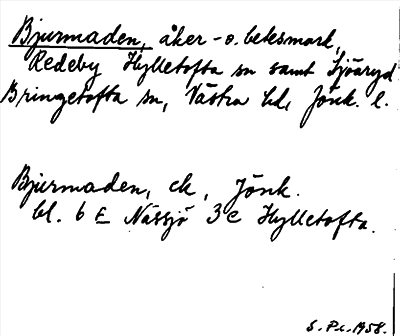 Bjurmaden, åker- o. betesmark,
Redeby Hylletofta sn samt Sjöaryd
Bringetofta sn, Västra hd, Jönk. l.
Bjurmaden, ek, Jönk.
bl. 6 E Nässjö 3 c Hylletofta.
S. Pn. 1958.